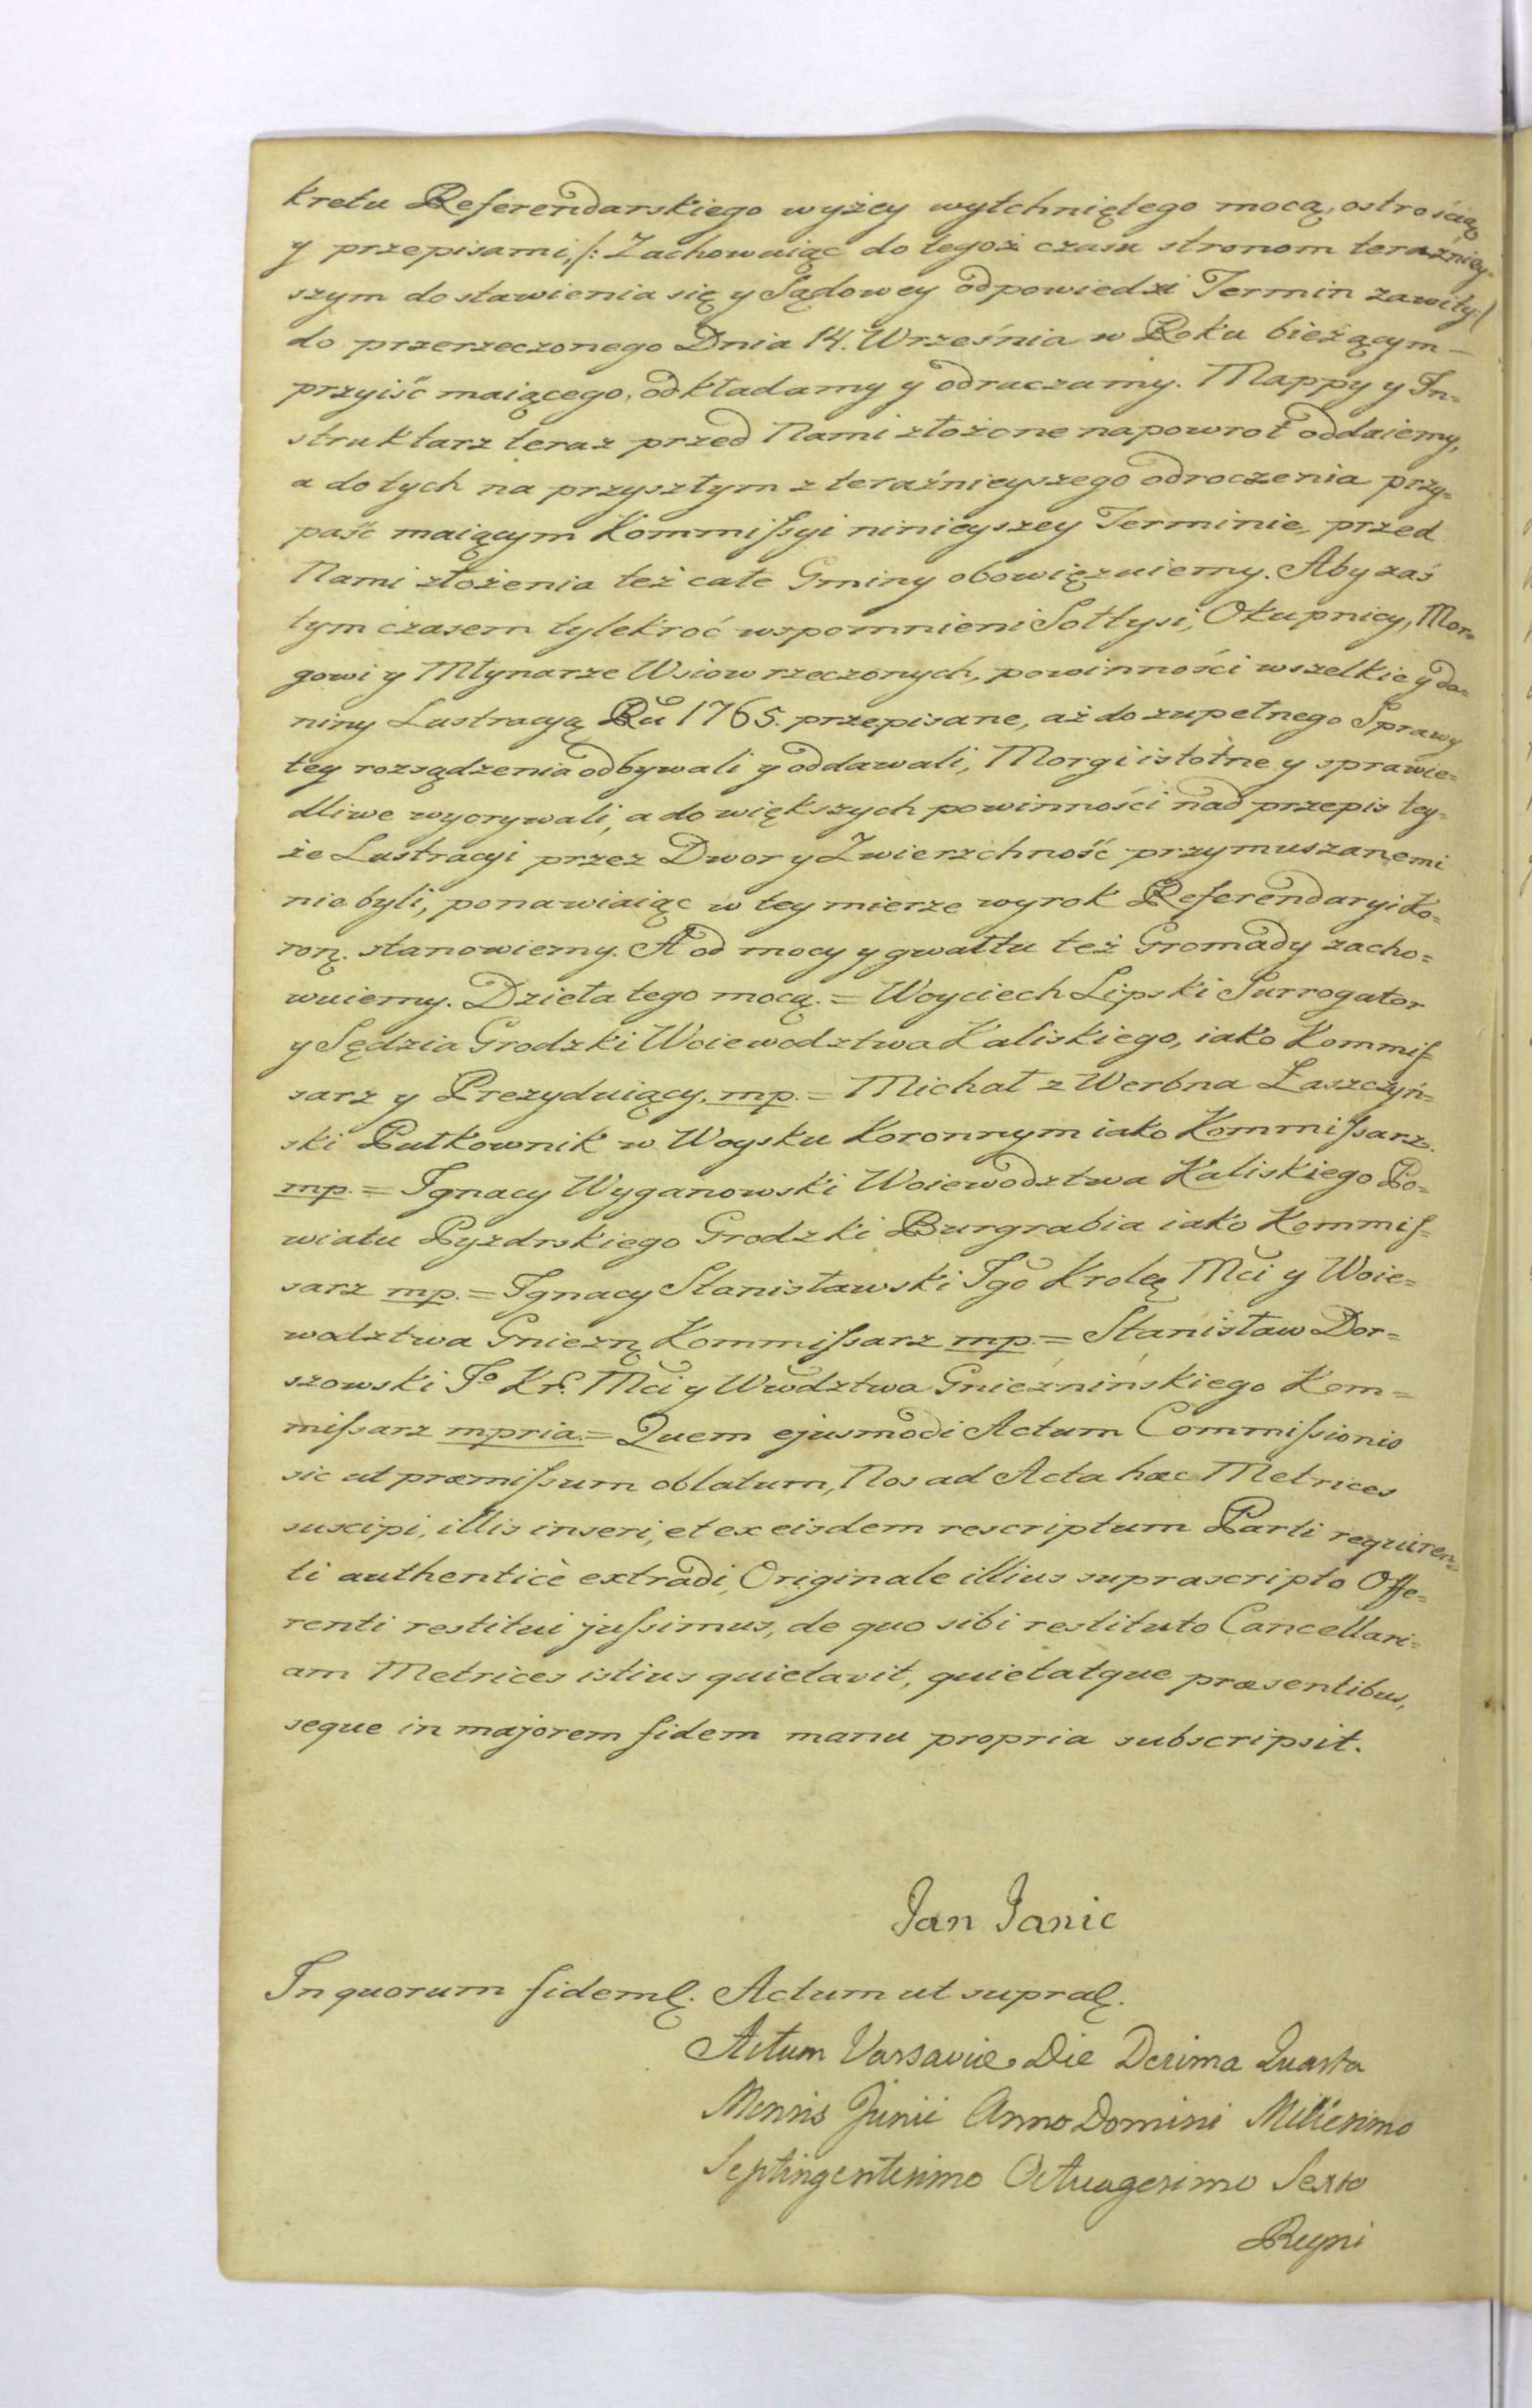 kretu Referendarskiego wyżey wytchniętego mocą, ostrością
y przepisami, /: Zachowuiąc do tegoż czasu stronom teraźniey-
szym do stawienia się y Sądowey odpowiedzi Termin zawity:/
do przerzeczonego Dnia 14. Września w Roku bieżącym –
przyiść maiącego, odkładamy y odraczamy. Mappy y In=
struktarz teraz przed Nami złożone napowrot oddaiemy,
a do tych na przyszłym z teraźnieyszego odroczenia przy=
paść maiącym Kommissyi ninieyszey Terminie, przed
Nami złożenia też całe Gminy obowięzuiemy. Aby zaś
tym czasem tylekroć wspomnieni Sołtysi, Okupnicy, Mor=
gowi y Młynarze Wsiow rzeczonych, powinności wszelkie y da=
niny Lustracyą Ru 1765. przepisane, aż do zupełnego Sprawy
tey rozsądzenia odbywali y oddawali, Morgi istotne y sprawie=
dliwe wyorywali, a do większych powinności nad przepis tey=
że Lustracyi przez Dwor y Zwierzchność przymuszanemi
nie byli, ponawiaiąc w tey mierze wyrok Referendaryi Ko=
ronę. stanowiemy. A od mocy y gwałtu też Gromady zacho=
wuiemy. Dzieła tego mocą. = Woyciech Lipski Surrogator
y Sędzia Grodzki Woiewodztwa Kaliskiego, iako Kommis=
sarz y Prezyduiący. mp. = Michał z Werbna Łaszczyń=
ski Pułkownik w Woysku Koronnym iako Kommissarz.
mp. = Ignacy Wyganowski Woiewodztwa Kaliskiego Po=
wiatu Pyzdrskiego Grodzki Burgrabia iako Kommis=
sarz mp. = Ignacy Stanisławski Jgo Krolę Mci y Woie=
wodztwa Gnieznę Kommissarz mp. = Stanisław Dor=
szowski Jo Kr. Mci y Wwdztwa Gnieznińskiego Kom=
missarz mpria. = Quem ejusmodi Actum Commissionis
sic ut præmissum oblatum, Nos ad Acta hæc Metrices
suscipi, illis inseri, et ex eisdem rescriptum Parti requiren=
ti authenticè extradi, Originale illius suprascripto Offe=
renti restitui jussimus, de quo sibi restituto Cancellari=
am Metrices istius quietavit, quietatque præsentibus,
seque in majorem fidem manu propria subscripsit.
Jan Janic
In quorum fidem. Actum ut supra.
Actum Varsaviæ Die Decima Quarta
Mensis Junii Anno Domini Millesimo
Septingentesimo Octuagesimo Sexto
Regni